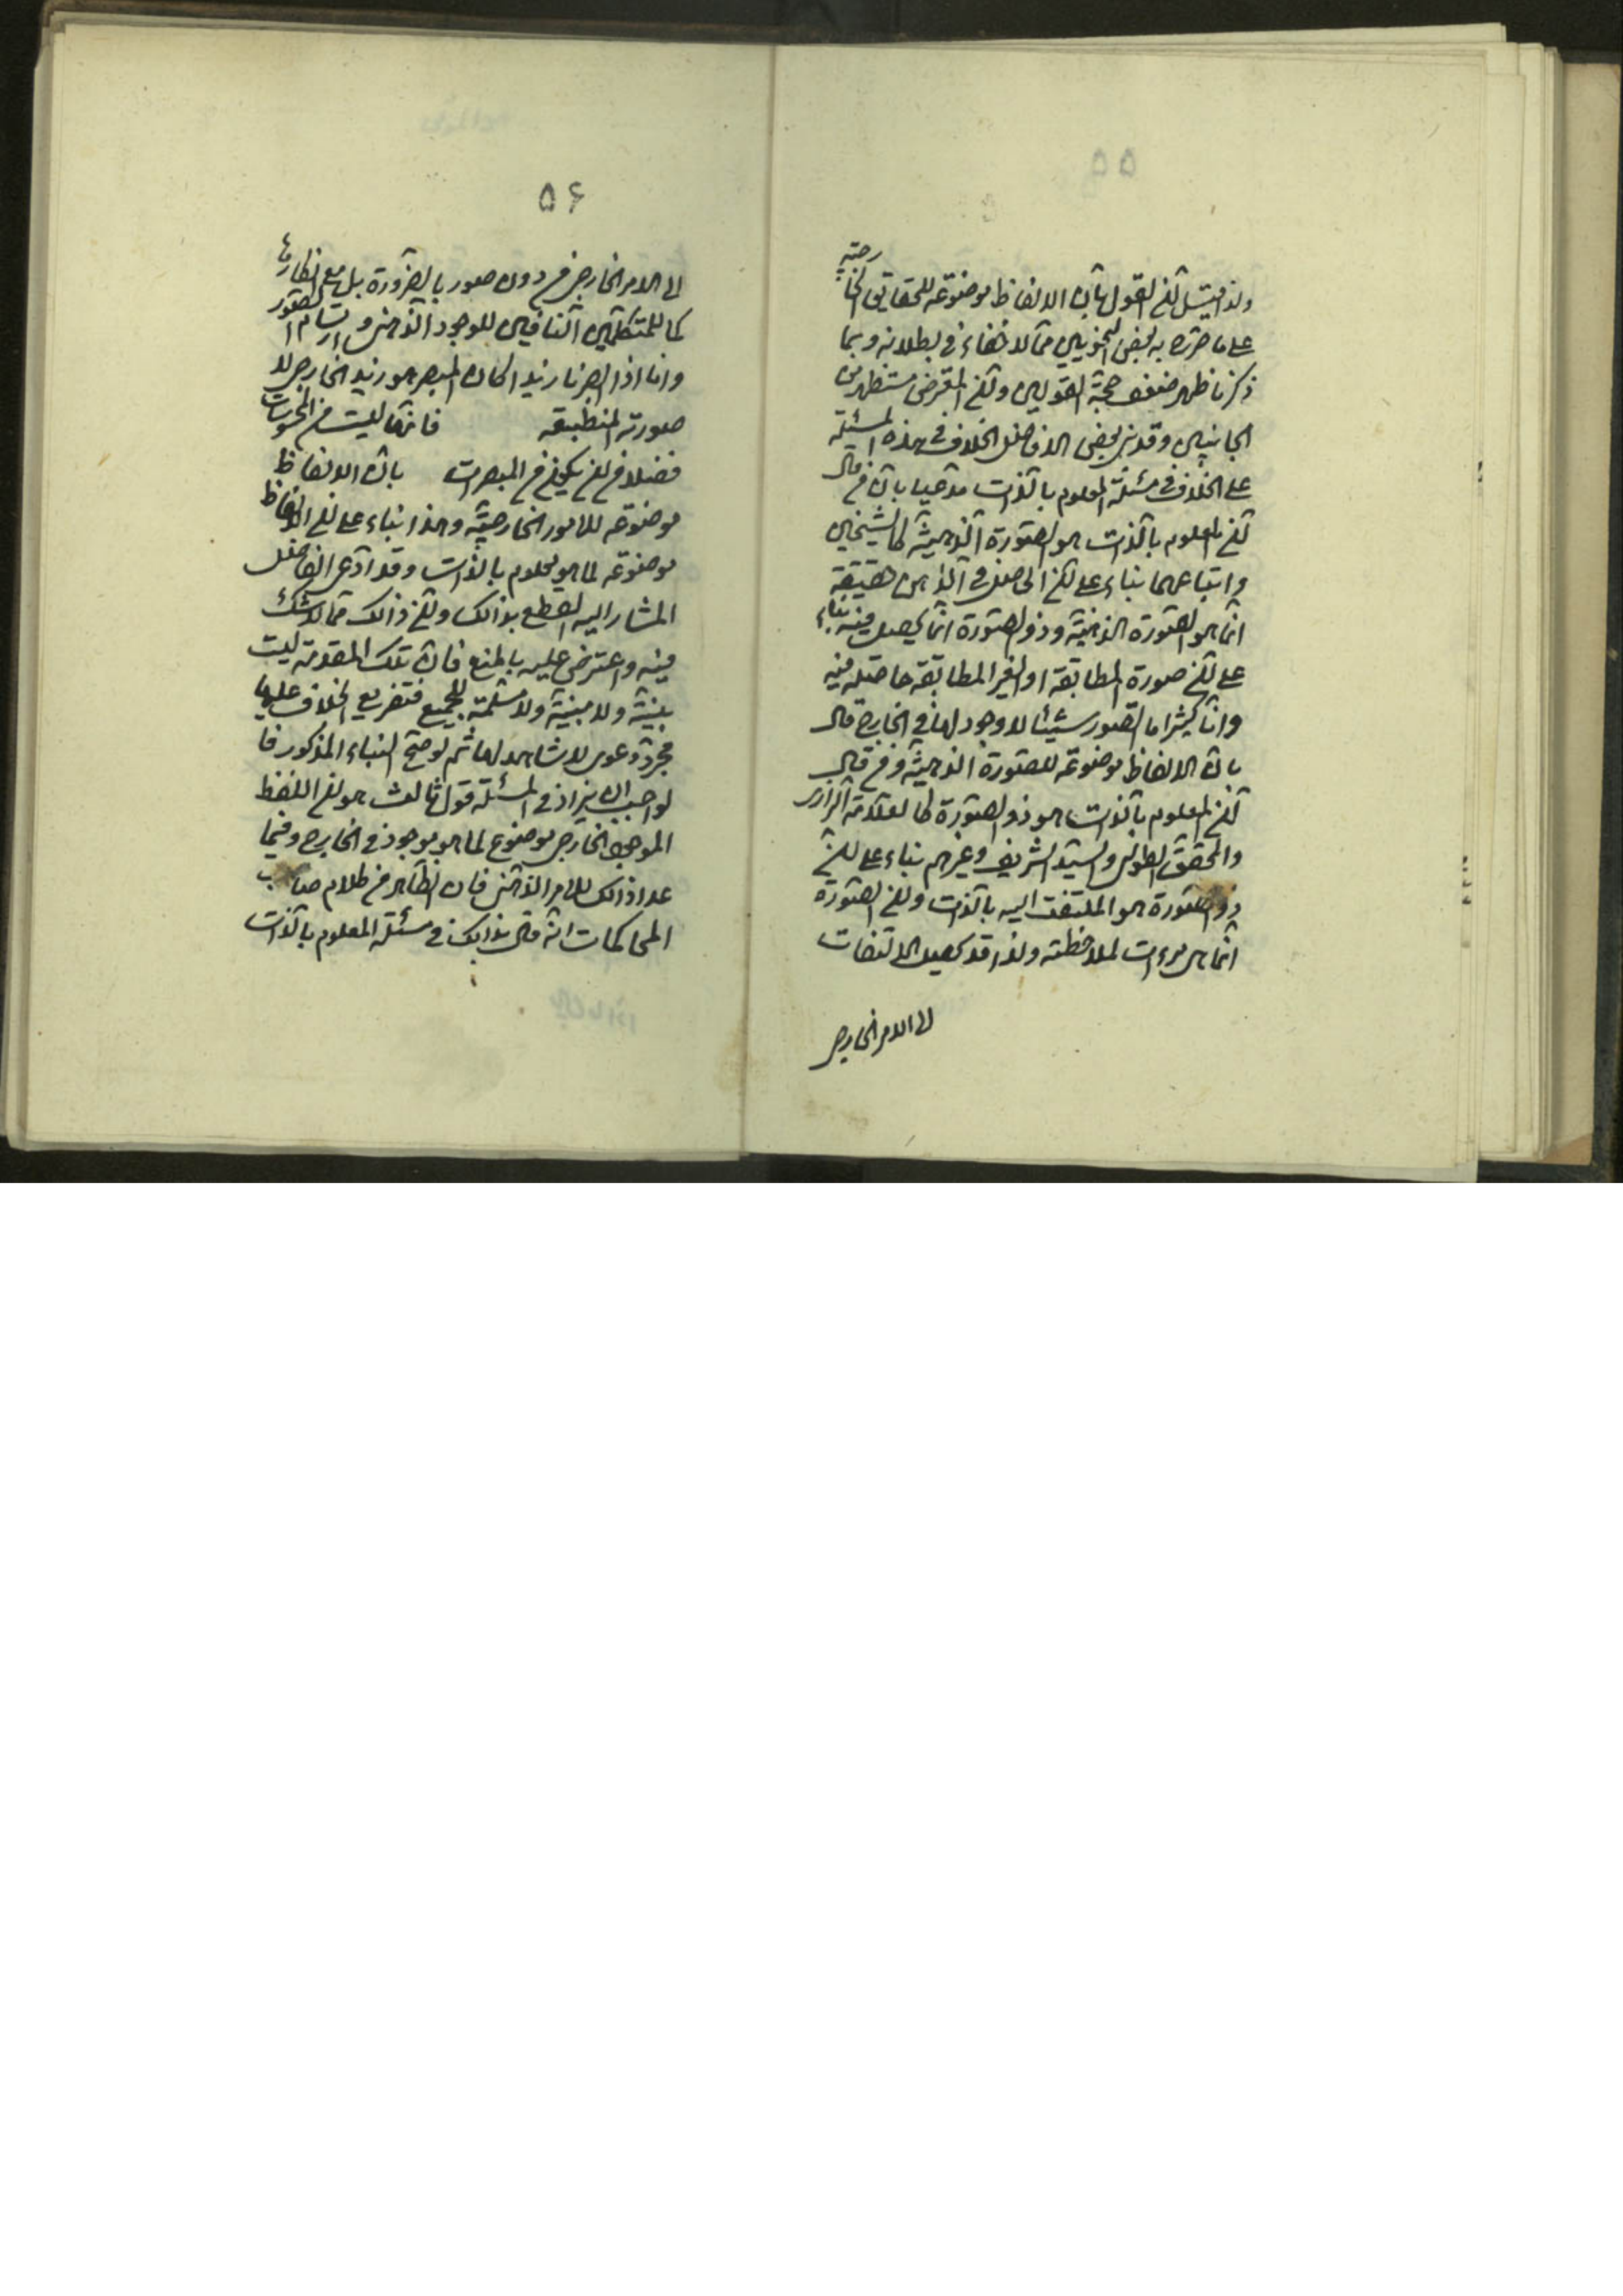 ۵۵
ولذا قيل ان القول بان الالفاظ موضوعة للحقايق الخا
رجيّة
على ما صرّح به بعض النحويين ممّا لا خفاء في بطلانه وبما
ذكرنا ظهر ضعف حجّة القولين وان المعترض مستظهر من
الجانبين وقد بنى بعض الافاضل الخلاف في هذه المسئلة
على الخلاف في مسئلة المعلوم بالذات مدّعيا بان من قال
انّ المعلوم بالذات هو الصّورة الذهنيّة كالشّيخين
واتباعهما بناء على ان الحاصل في الذّهن حقيقة
انّما هو الصّورة الذهنيّة وذو الصّورة انّما يحصل فيه بناء
على انّ صورة المطابقة او الغير المطابقة حاصلة فيه
وانّا كثيرا ما نتصور شيئا لا وجود لها في الخارج قال
بان الالفاظ موضوعة للصّورة الذهنيّة ومن قال
انّ المعلوم بالذات هو ذو الصّورة كالعلّامة الرازي
والمحقق الطوسي والسيّد الشريف وغيرهم بناء على انّ
ذو الصّورة هو الملتفت اليه بالذات وان الصّورة
انّما هي مرءات لملاحظته ولذا قد يحصل الالتفات
الى الامر الخارجى
۵۶
الى الامر الخارجى من دون صور بالضّرورة بل مع انكارها
كما للمتكلّمين النّافين للوجود الذّهنى وارتسام الصّور
وانا اذا ابصرنا زيدا كان المبصر هو زيد الخارجى لا
صورته المنطبقة فانّها ليست من المحسوسات
فضلا من ان يكون من المبصرات بان الالفاظ
موضوعة للامور الخارجيّة وهذا بناء على ان الالفاظ
موضوعة لما هو معلوم بالذّات وقد ادّعى الفاضل
المشار اليه القطع بذالك وان ذالك ممّا لا شكّ
فيه واعترض عليه بالمنع فان تلك المقدمة ليست
بيّنة ولا مبيّنة ولا مسلّمة للجميع فتفريع الخلاف عليها
مجرّد دعوى لا شاهد لها ثم لو صحّ البناء المذكور فا
لواجب ان يزاد في المسئلة قول ثالث هو ان اللفظ
الموجود الخارجى موضوع لما هو موجود في الخارج وفيما
عدا ذالك للامر الذّهنى فان الظّاهر من كلام صاحب
المحاكمات انّه قال بذالك في مسئلة المعلوم بالذّات